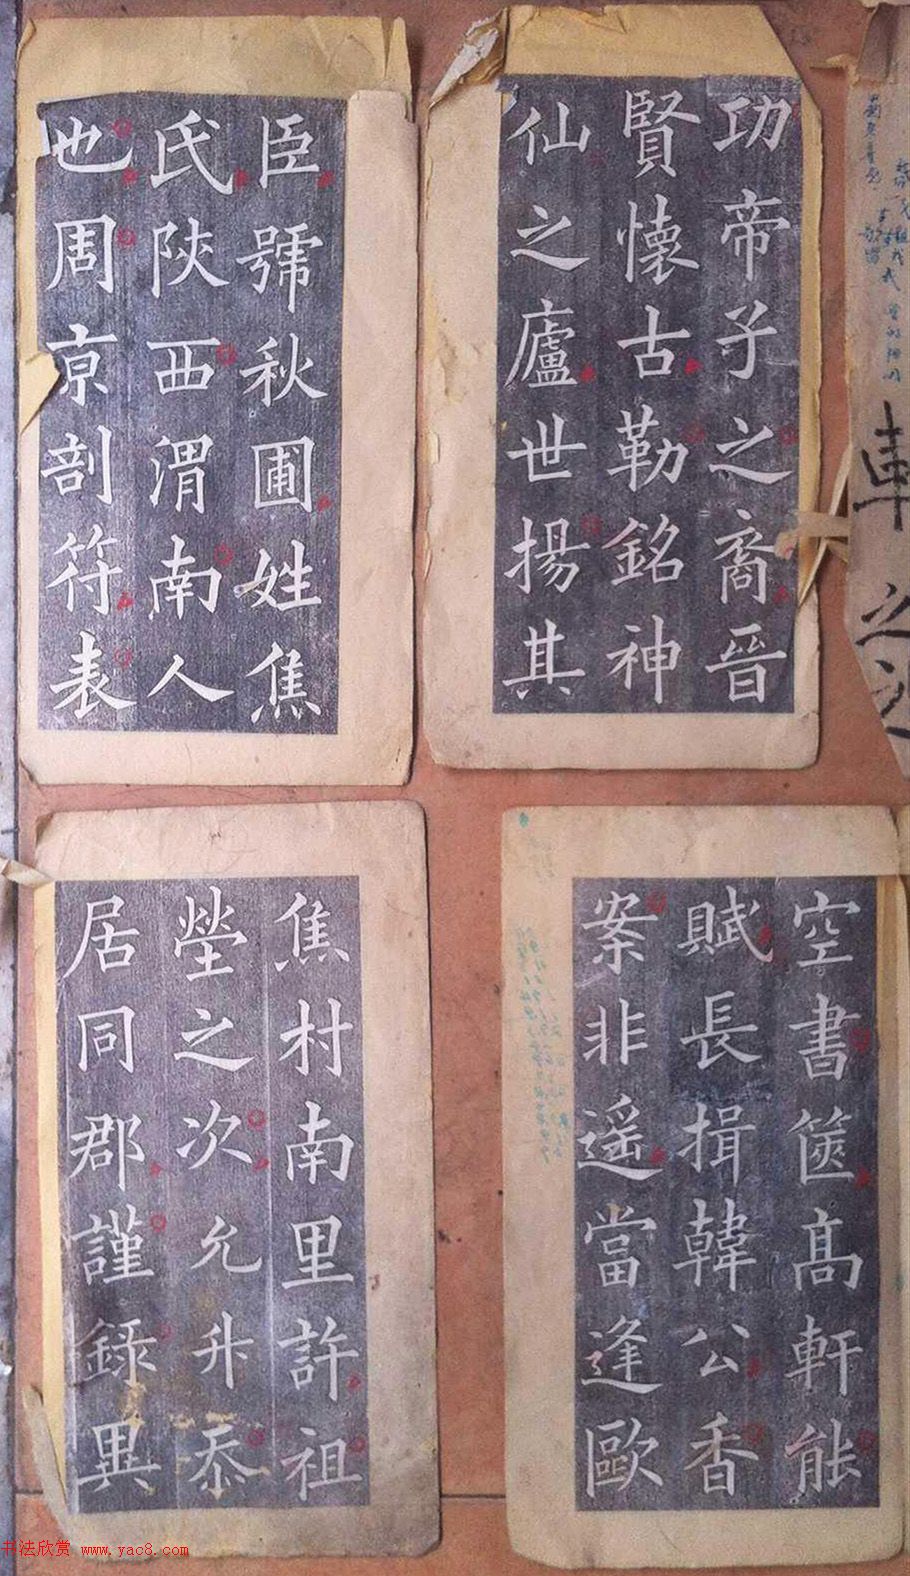 臣號秋圃姓焦
氏陝西渭南人
也周京剖符表
功帝子之裔晉
賢懷古勒銘神
仙之廬世揚其
車之
焦村南里許祖
塋之次允升忝
居同郡謹錄異
空書篋高軒能
賦長揖韓公香
案非遥當逢歐
书法欣赏 www.yac8.com